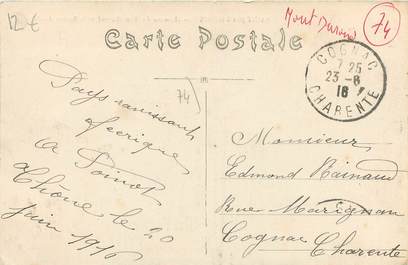 12 €
Mont Durand
74
Carte Postale
COGNAC
7 25
23 - 6
16
CHARENTE
74
Pays ravissant
féerique
a Poinot
Thône le 20
juin 1916
Monsieur
Edmond Rainaud
Rue Marignan
Cognac
Charente